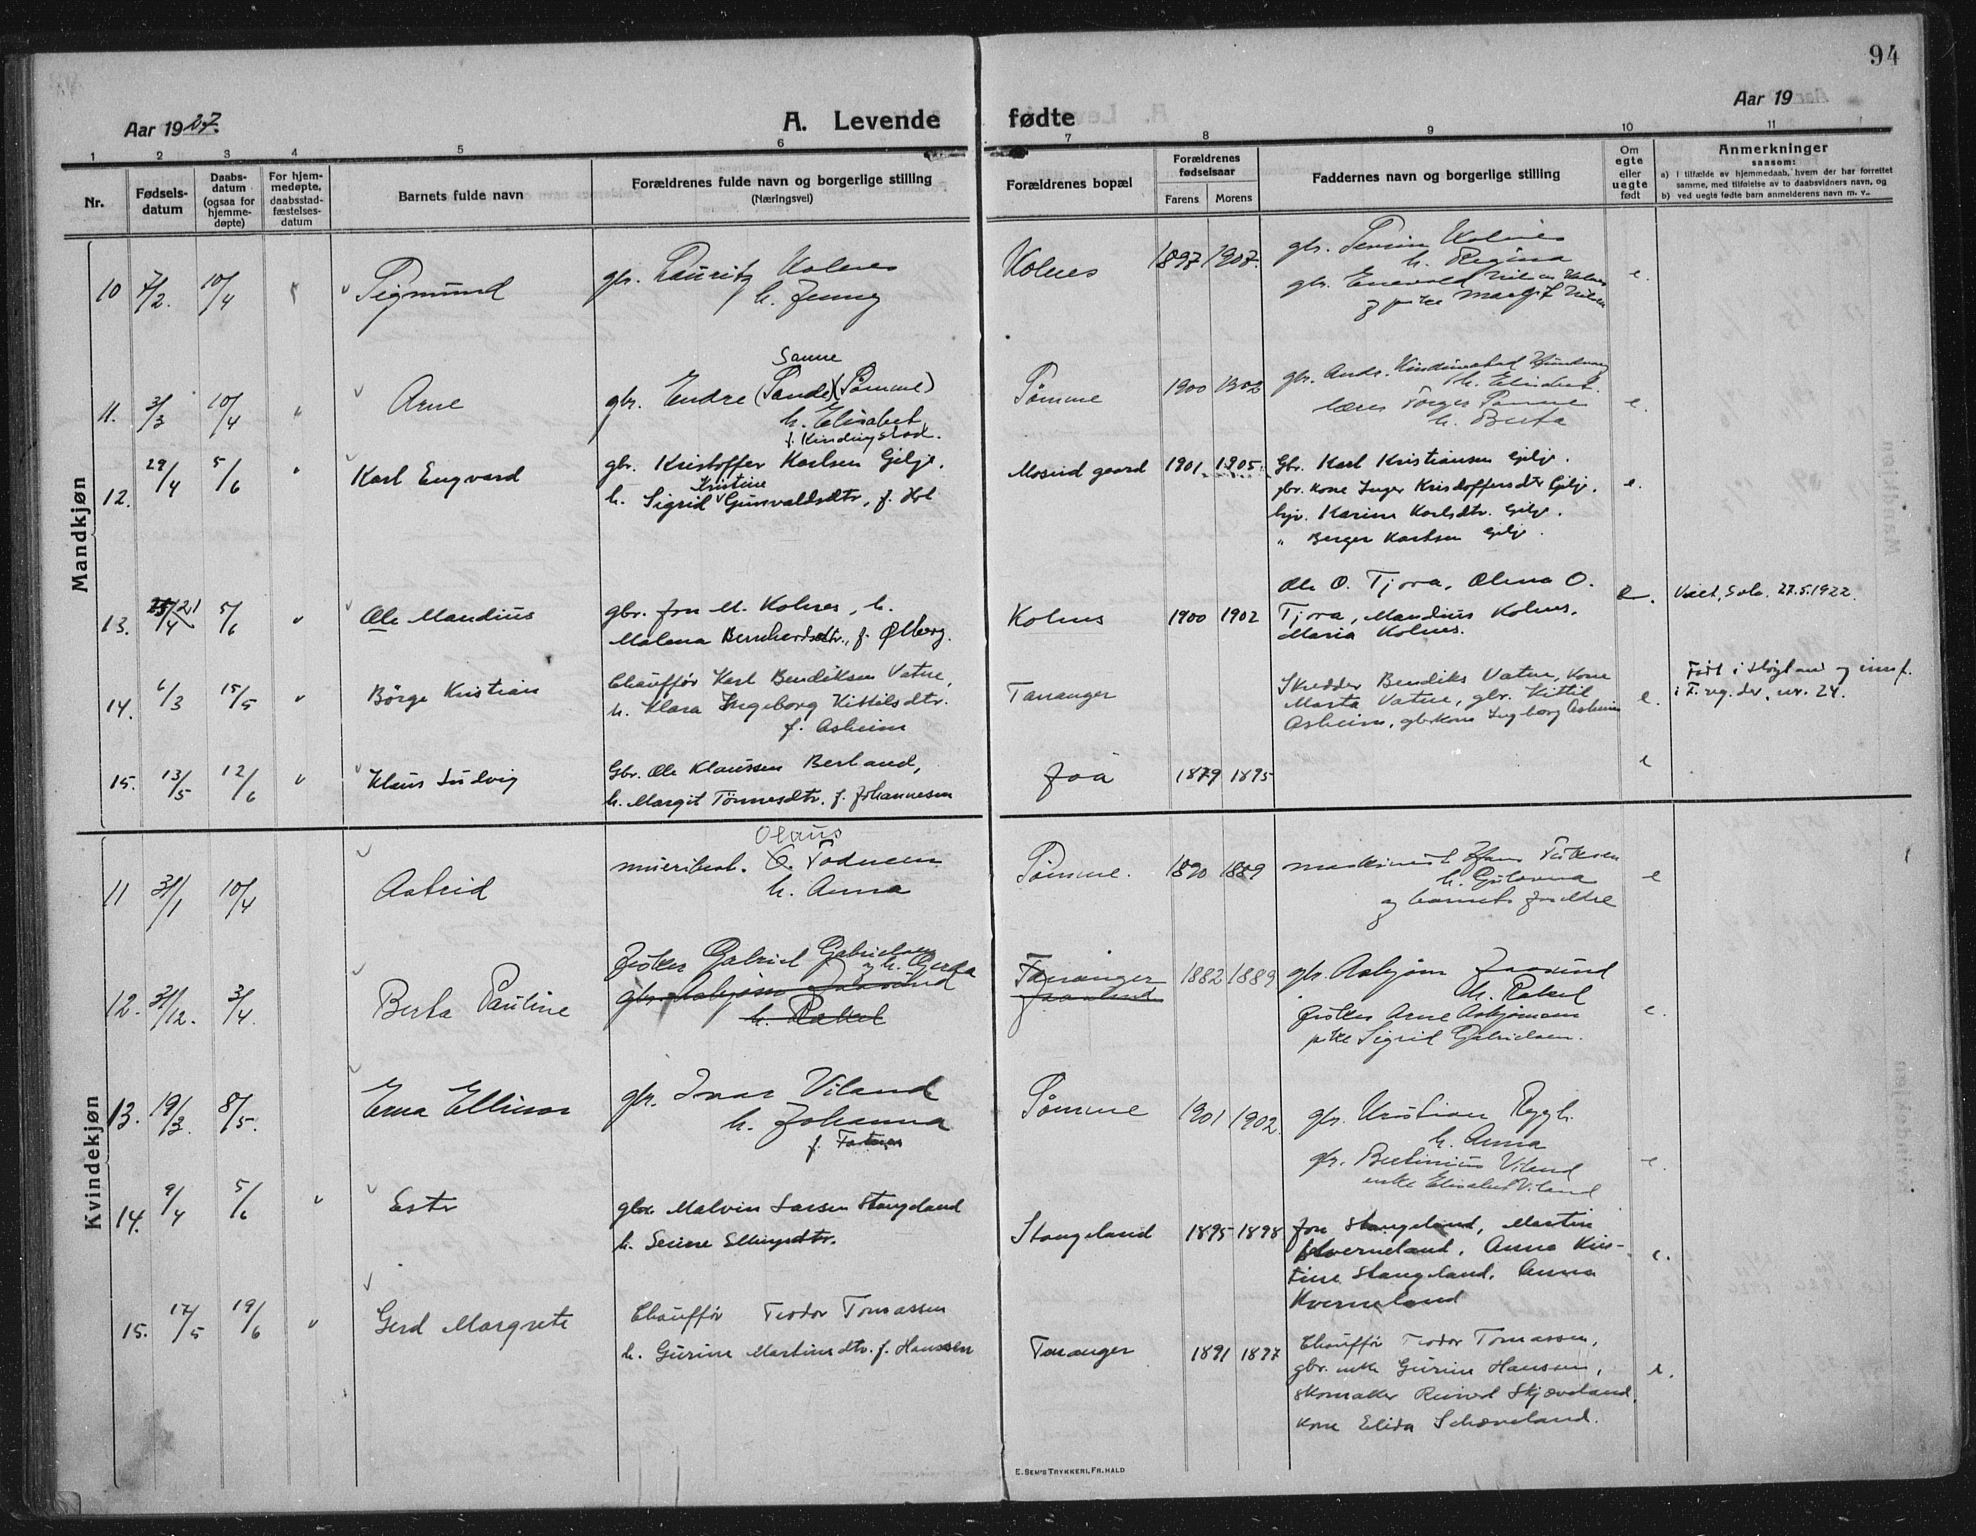 94
Aar 1927.
A. Levende fødte
Aar 19
1 2 3 4 5 6 7 8 9 10 11
Nr.
Fødsels-
datum
Daabs-
datum
(ogsaa for
hjemme-
døpte)
For hjem-
medøpte,
daabsstad-
fæstelses-
datum
Barnets fulde navn
Forældrenes fulde navn og borgerlige stilling
(Næringsvei)
Forældrenes bopæl
Forældrenes
fødselsaar
Farens Morens
Faddernes navn og borgerlige stilling
Om
egte
eller
uegte
født
Anmerkninger
saasom:
a) I tilfælde av hjemmedaab, hvem der har forrettet
samme, med tilføielse av to daabsvidners navn, og
b) ved uegte fødte barn anmelderens navn m. v..
Mandkjøn
10 7/2. 10/4 Sigmund
gbr. Lauritz Kolnes
h. Jenny
Kolnes 1897 1907.
Kolnes
h. Regina
e.
11. 3/3 10/4 Arne
Sømme
gbr. Endre (Sande) (Sømme)
h. Elisabet
f. Kindingstad.
Sømme 1900 1902
h. Berta
e.
12. 29/4 5/6 Karl Engvard
gbr. Kristoffer Karlsen Gilje.
Kristine
h. Sigrid Gunvaldsdtr, f. Hol
Mosind gaard 1901. 1905.
Gbr. Karl Kristiansen Gilje.
gbr. kone Inger Kristoffersdtr Gilje.
Karine Karlsdtr. Gilje.
" Berger Karlsen Gilje.
e.
13. 5/6 Ole Mandius
gbr. Jon M. Kolnes, h.
Malena Bernhardsdtr., f. Ølberg.
Kolnes 1900 1902
Ole O. Tjora, Olena O.
Tjora, Mandius Kolnes,
Maria Kolnes.
e. Viet, Sola 27.5.1922.
14. 6/3 15/5 Børge Kristian
Chauffør Karl Bendiksen Vatne,
h. Klara Ingeborg Kittilsdtr.
f. Asheim
Tananger
Skredder Bendiks Vatne, kone
Marta Vatne, gbr. Kittil
Asheim, gbrkone Ingborg Asheim
e.
Født i Høyland og innf.
i F. reg. der, nr. 24.
15. 13/5 12/6 Klaus Ludvig
Gbr. Ole Klaussen Berland,
h. Margit Tønnesdtr. f. Johannesen
Joa 1879 1895
e
Kvindekjøn
11 31/1 10/4 Astrid
Olaus
O. Todnem
h. Anna
Sømme. 1890 1889
maskinist Hans
og barnets foreldre
e
12. 31/12. 3/4. Berta Pauline
fisker Gabriel Gabrielsen
og h. Berta
gbr. Asbjørn Jaasund
h. Rakel
Tananger
1882 1889
gbr. Asbjørn Jaasund
h. Rakel
fisker Arne Asbjørnsen
pike Sigrid Gabrielsen.
e.
13. 19/3. 8/5. Erna Ellinor
gbr. Ivar Viland
h. Johanna
f.
Sømme 1901 1902.
gbr. Kristian Rygh.
h. Anna
gbr. Bertinius Viland
enke Elisabet Viland
e.
14. 9/4 5/6 Ester
gbr. Malvin Larsen Stangeland
h. Serine Ellingsdtr.
Stangeland 1895 1898
Jon Stangeland, Martin
Kverneland, Anna Kris-
tine Stangeland, Anna
Kverneland
e.
15. 17/5 19/6 Gerd Margrete
Chauffør Teodor Tomassen
h. Gurine Martinsdtr. f. Hanssen
Tananger 1891 1897
Chauffør Teodor Tomassen,
gbr. enke Gurine Hanssen,
skomaker Reinert Skjæveland,
kone Elida Schæveland.
e.
E. SEM'S TRYKKERI, FR.HALD